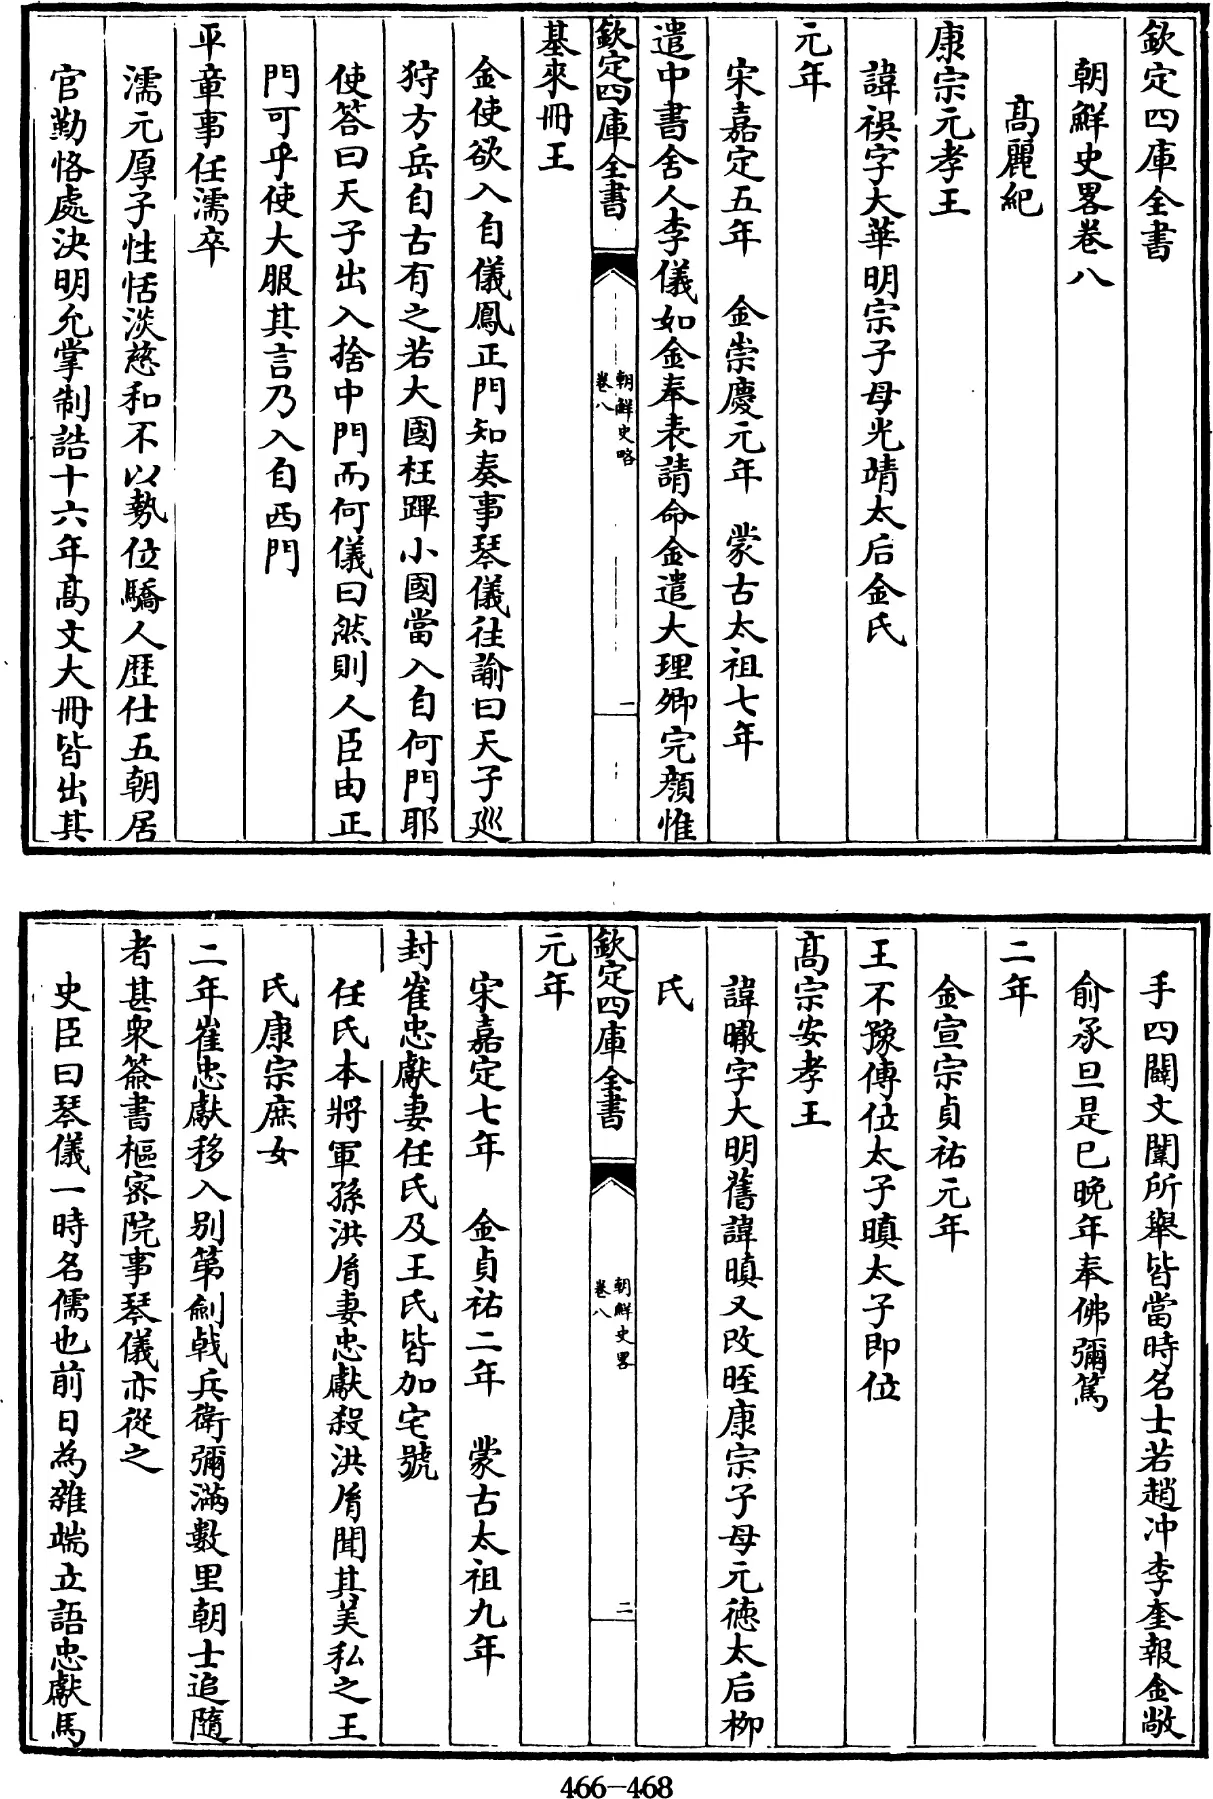 欽定四庫全書
朝鮮史畧卷八
髙麗紀
康宗元孝王
諱祦字大華明宗子母光靖太后金氏
元年
宋嘉定五年 金崇慶元年 蒙古太祖七年
遣中書舍人李儀如金奉表請命金遣大理卿完顔惟
欽定四庫全書
朝鮮史略
卷八
一
基來冊王
金使欲入自儀鳳正門知奏事琴儀往諭曰天子廵
狩方岳自古有之若大國枉蹕小國當入自何門耶
使答曰天子出入捨中門而何儀曰然則人臣由正
門可乎使大服其言乃入自西門
平章事任濡卒
濡元厚子性恬淡慈和不以勢位驕人歴仕五朝居
官勤恪處決明允掌制誥十六年髙文大冊皆出其
手四闢文闈所舉皆當時名士若趙冲李奎報金敞
俞承旦是已晚年奉佛彌篤
二年
金宣宗貞祐元年
王不豫傳位太子瞋太子即位
髙宗安孝王
諱㬚字大明舊諱瞋又改晊康宗子母元徳太后柳
氏
欽定四庫全書
朝鮮史畧
卷八
二
元年
宋嘉定七年 金貞祐二年 蒙古太祖九年
封崔忠獻妻任氏及王氏皆加宅號
任氏本將軍孫洪胤妻忠獻殺洪胤聞其美私之王
氏康宗庶女
二年崔忠獻移入别第劍戟兵衛彌滿數里朝士追隨
者甚衆簽書樞宻院事琴儀亦從之
史臣曰琴儀一時名儒也前日為雜端立語忠獻馬
466-468